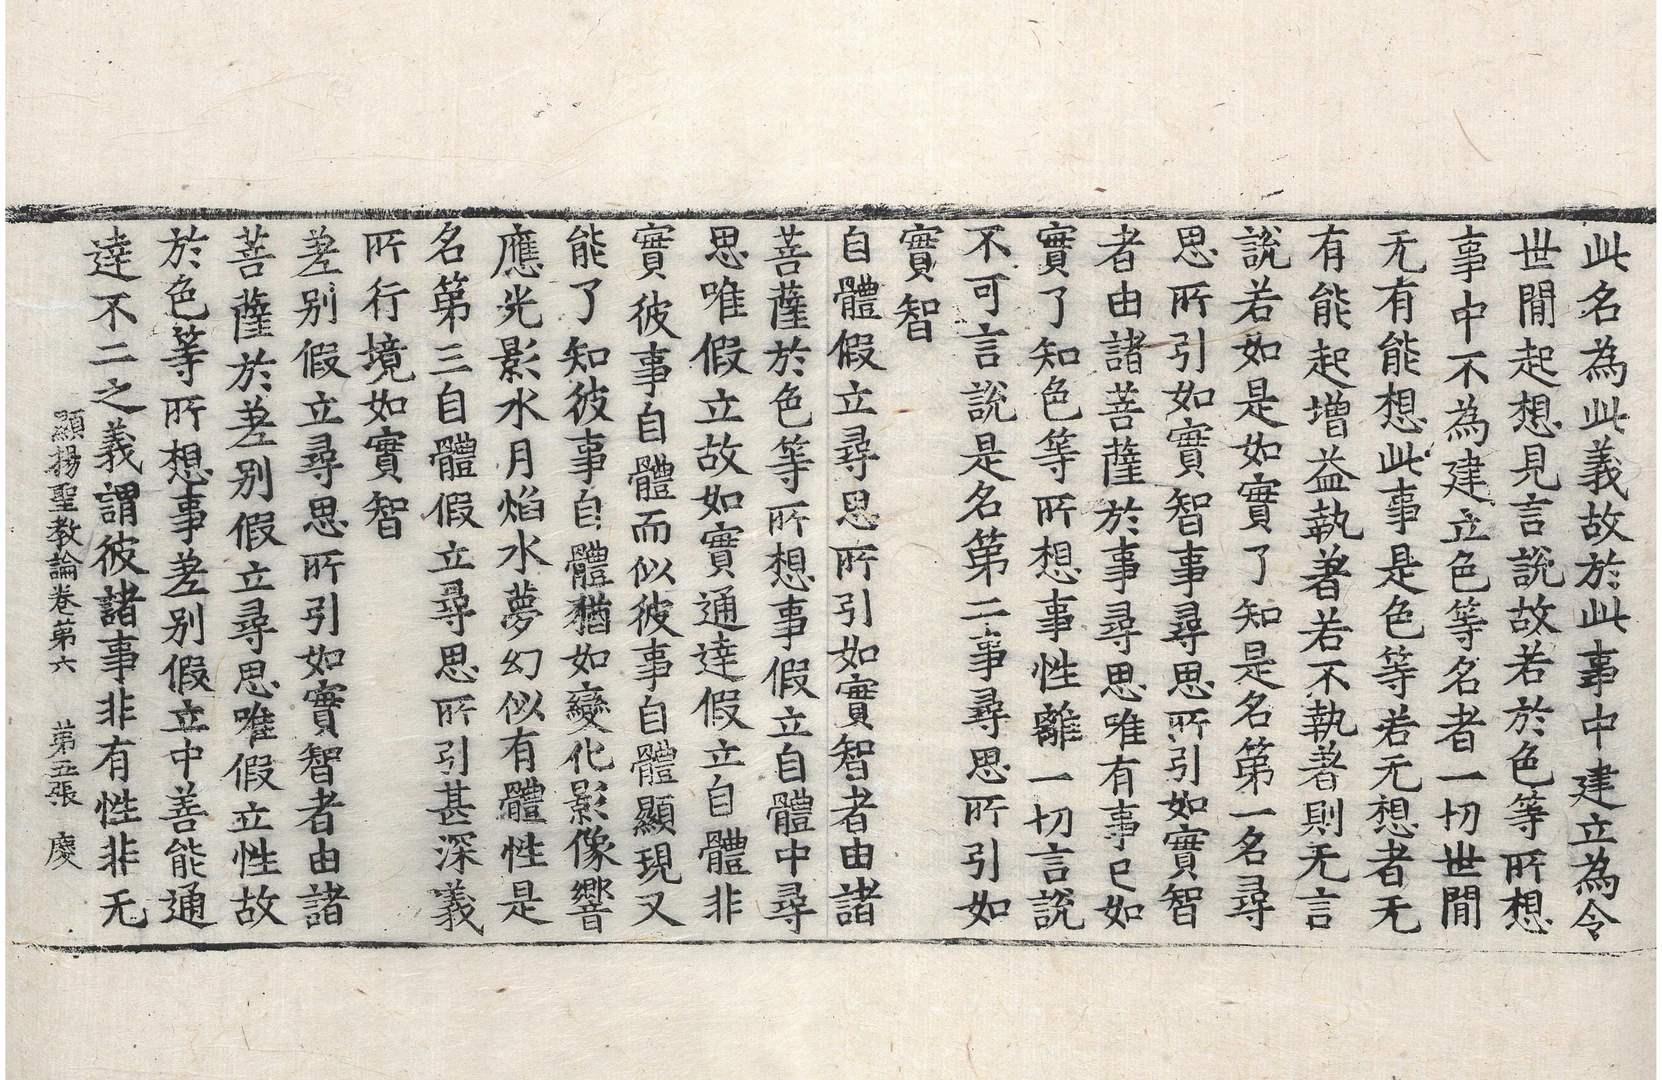 此名為此義故於此事中建立為令
世閒起想見言說故若於色等所想
事中不為建立色等名者一切世閒
无有能想此事是色等若无想者无
有能起增益執著若不執著則无言
說若如是如實了知是名第一名尋
思所引如實智事尋思所引如實智
者由諸菩薩於事尋思唯有事已如
實了知色等所想事性離一切言說
不可言說是名第二事尋思所引如
實智
自體假立尋思所引如實智者由諸
菩薩於色等所想事假立自體中尋
思唯假立故如實通達假立自體非
實彼事自體而似彼事自體顯現又
能了知彼事自體猶如變化影像響
應光影水月焰水夢幻似有體性是
名第三自體假立尋思所引甚深義
所行境如實智
差別假立尋思所引如實智者由諸
菩薩於差別假立尋思唯假立性故
於色等所想事差別假立中善能通
達不二之義謂彼諸事非有性非无
顯揚聖教論卷第六 第五張 慶